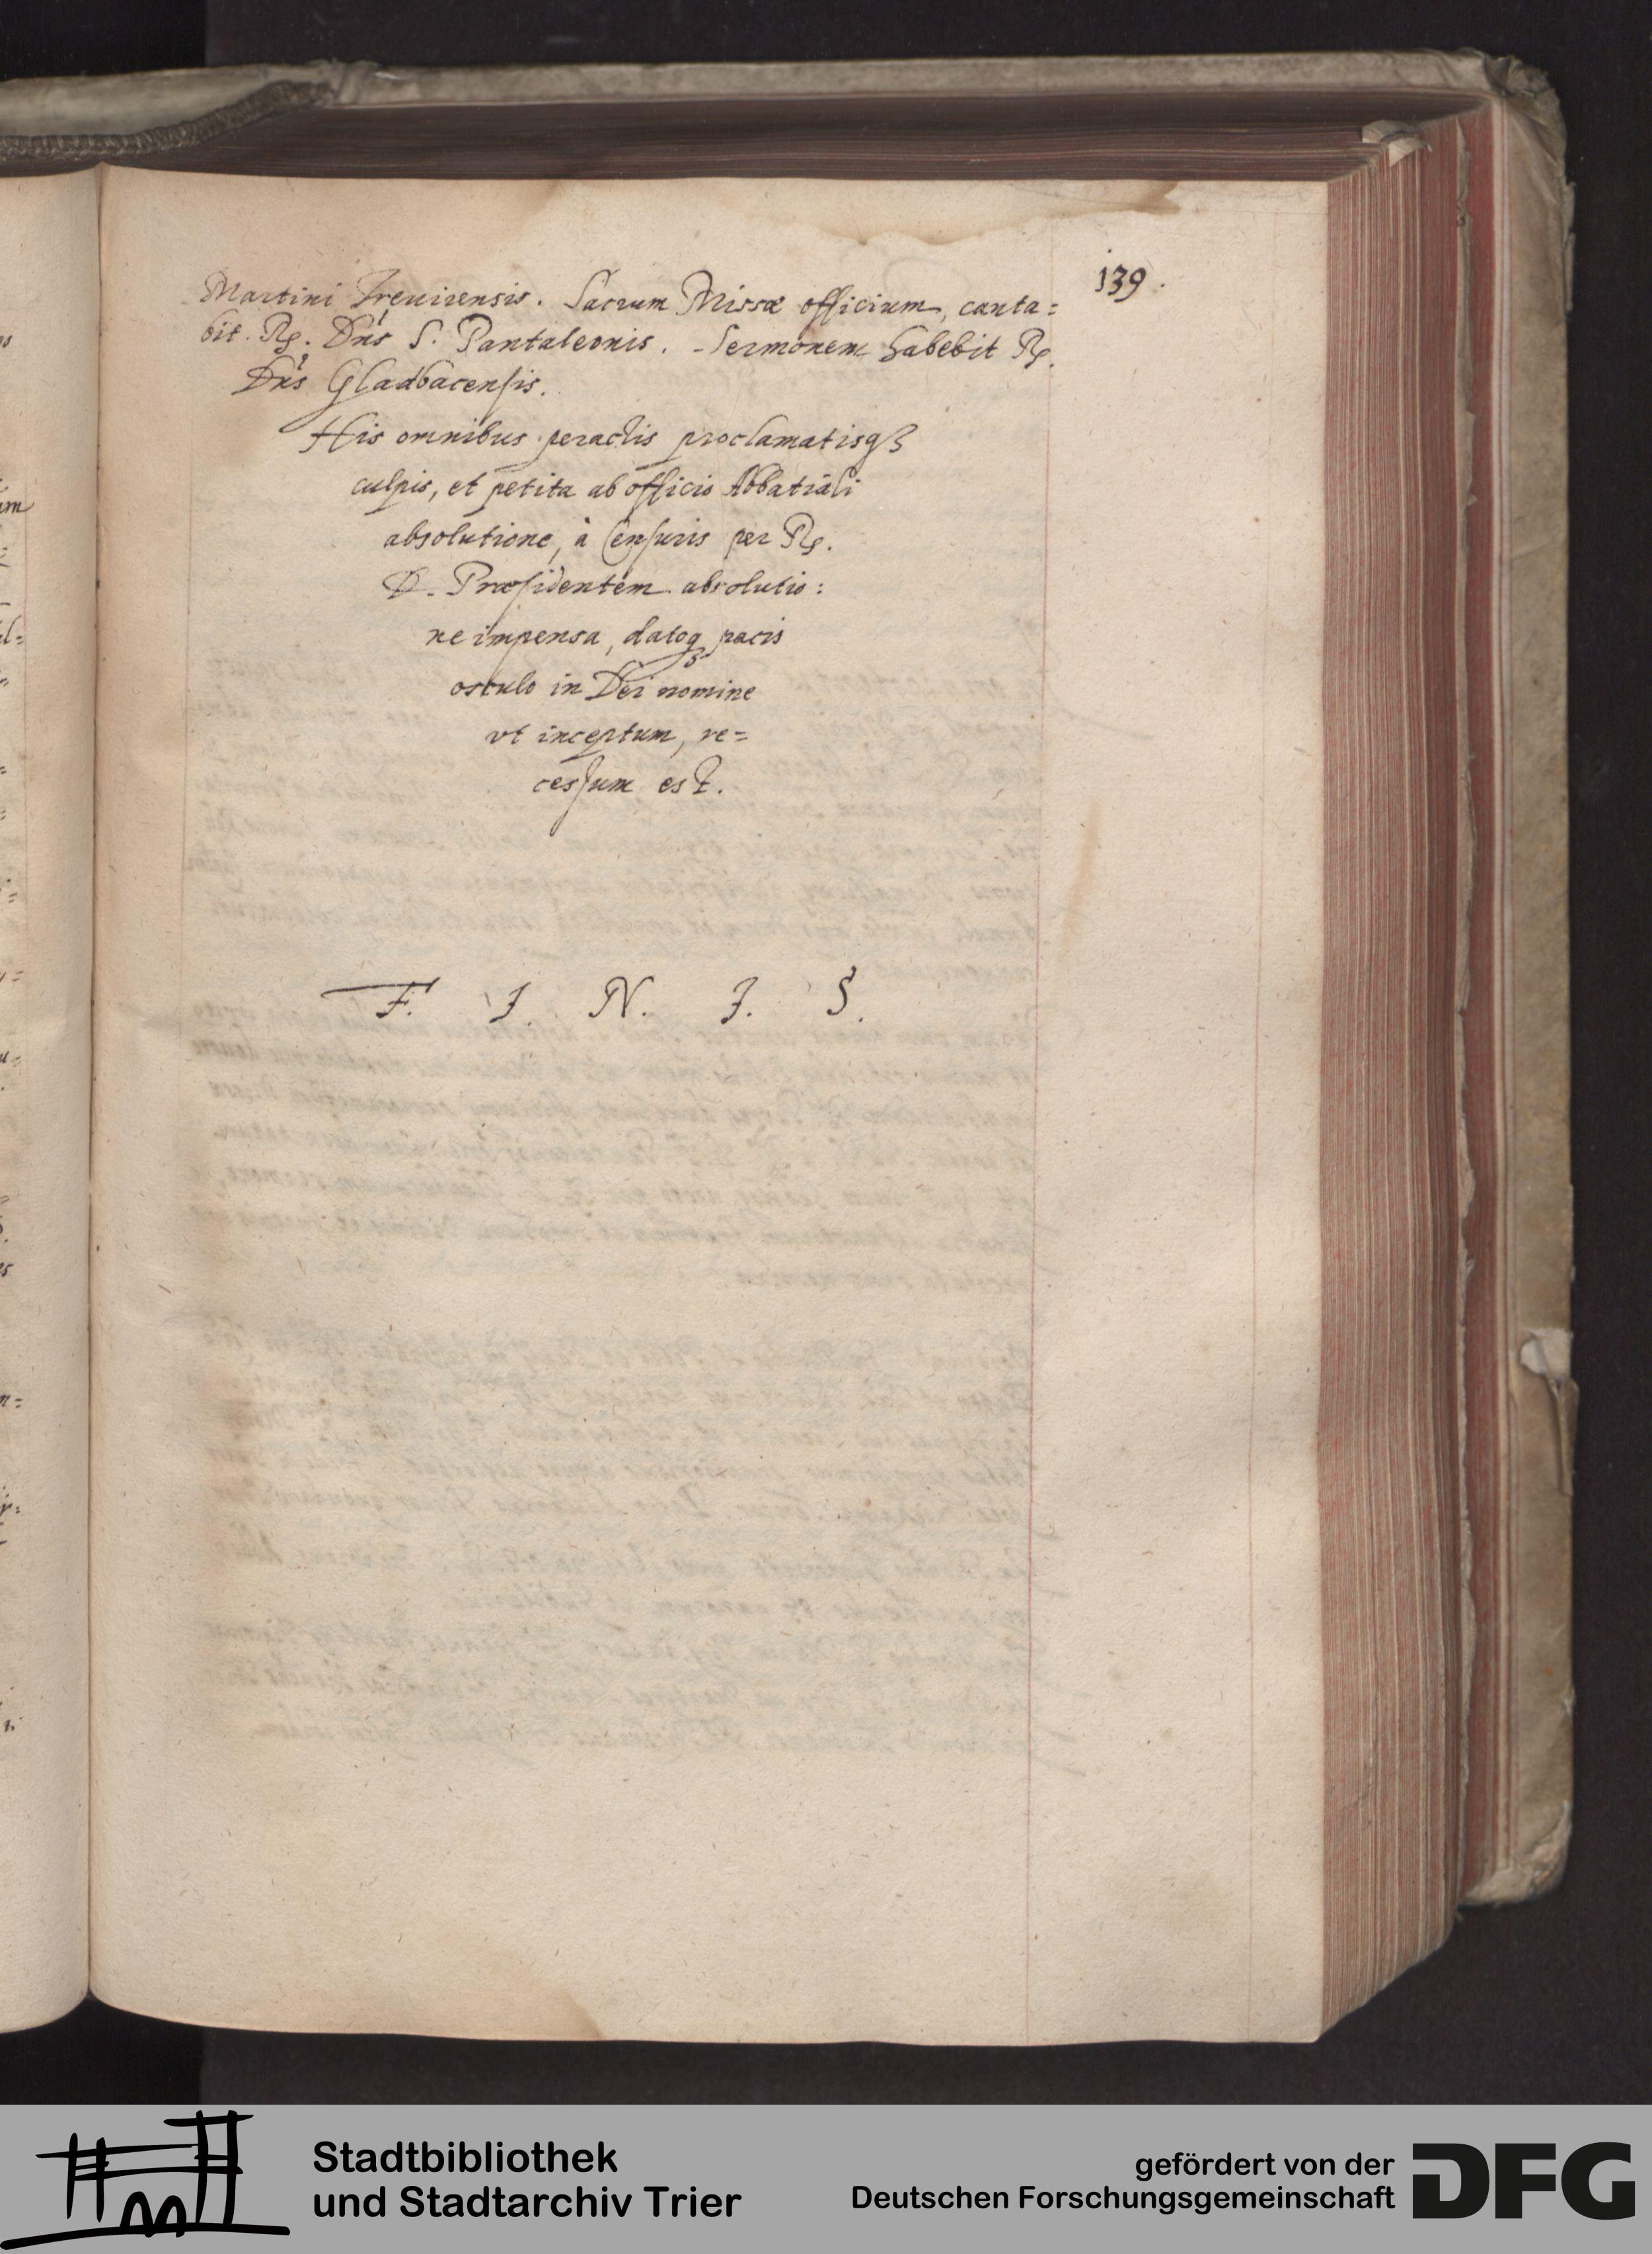 139.
Martini Treuirensis. Sacrum Missæ officium, canta=
bit. Rs. Dns S. Pantaleonis. Sermonem habebit Rs.
Dns Gladbacensis.
His omnibus peractis proclamatisqꝫ
culpis, et petita ab officio Abbatiali
absolutione, à Censuris per Rs.
D. Præsidentem absolutio:
ne impensa, datoqꝫ pacis
osculo in Dei nomine
vt inceptum, re=
cessum est.
F. I. N. I. S.
Stadtbibliothek
und Stadtarchiv Trier
gefördert von der
Deutschen Forschungsgemeinschaft
DFG